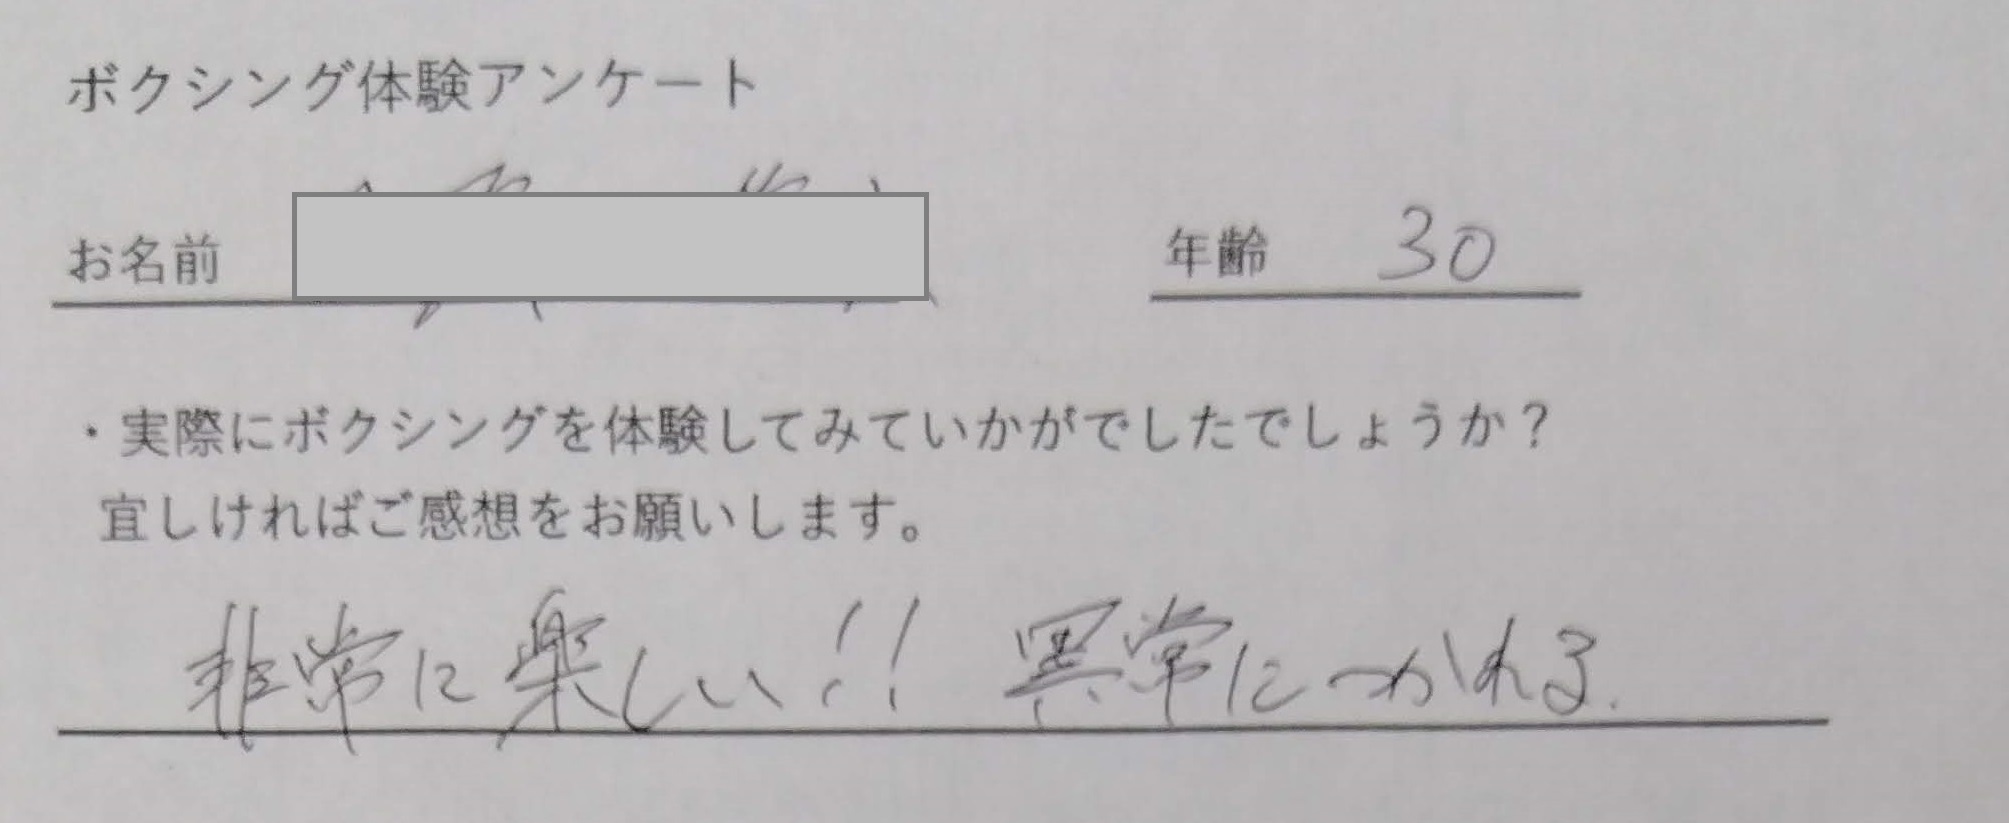 ボクシング体験アンケート
お名前 年齢 30
・実際にボクシングを体験してみていかがでしたでしょうか?
宜しければご感想をお願いします。
非常に楽しい!! 異常につかれる.